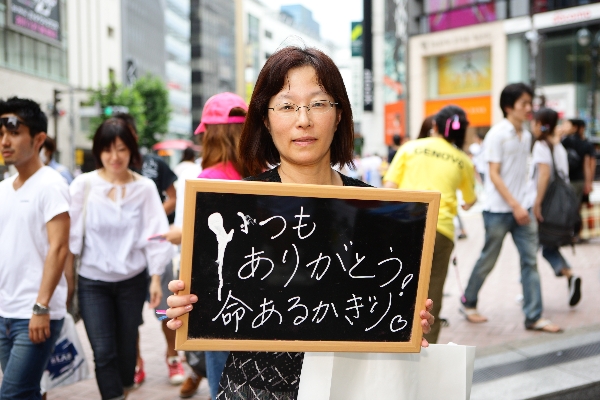 いつも
ありがとう!
命あるかぎり♡
GENOVA